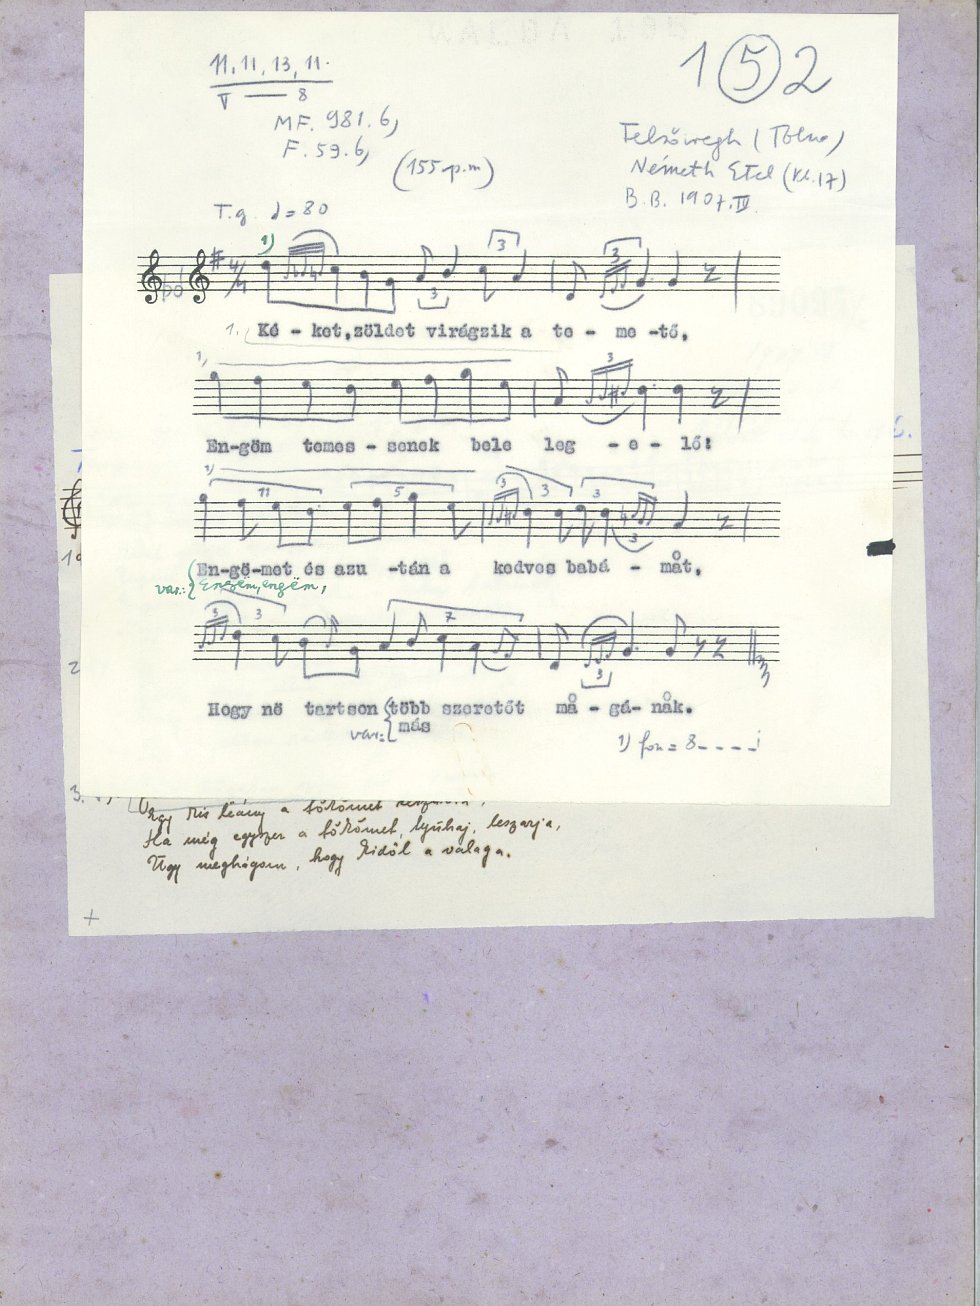 11, 11, 13, 11.
V — 8
MF. 981. 6,
F. 59. 6,
(155 p.m)
1 (5) 2
Felsőiregh (Tolna)
Németh Etel (kb. 17)
B.B. 1907. IV.
T.g. = 80
1)
1. Ké - ket, zöldet virágzik a te - me -tő,
1)
En-göm temes - senek bele leg - e - lő!
1)
En-gö-met és azu -tán a kedves babá - måt,
var.: { Engëm, engëm,
Hogy nö tartson { több szeretőt må - gá- nåk.
var.: { más
1) fon = 8 - - - -
2.
3.
Egy kis leány a tőkömet
Ha még egyszer a tőkömet, lyuhaj, leszarja,
Úgy meghágom, hogy kidől a valaga.
+